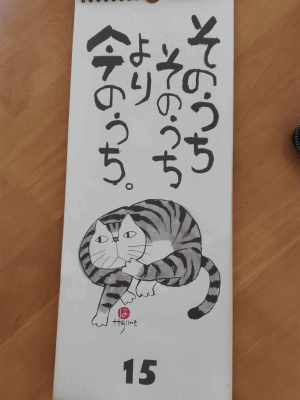 そのうち
そのうち
より
今のうち。
は
Hajime
15